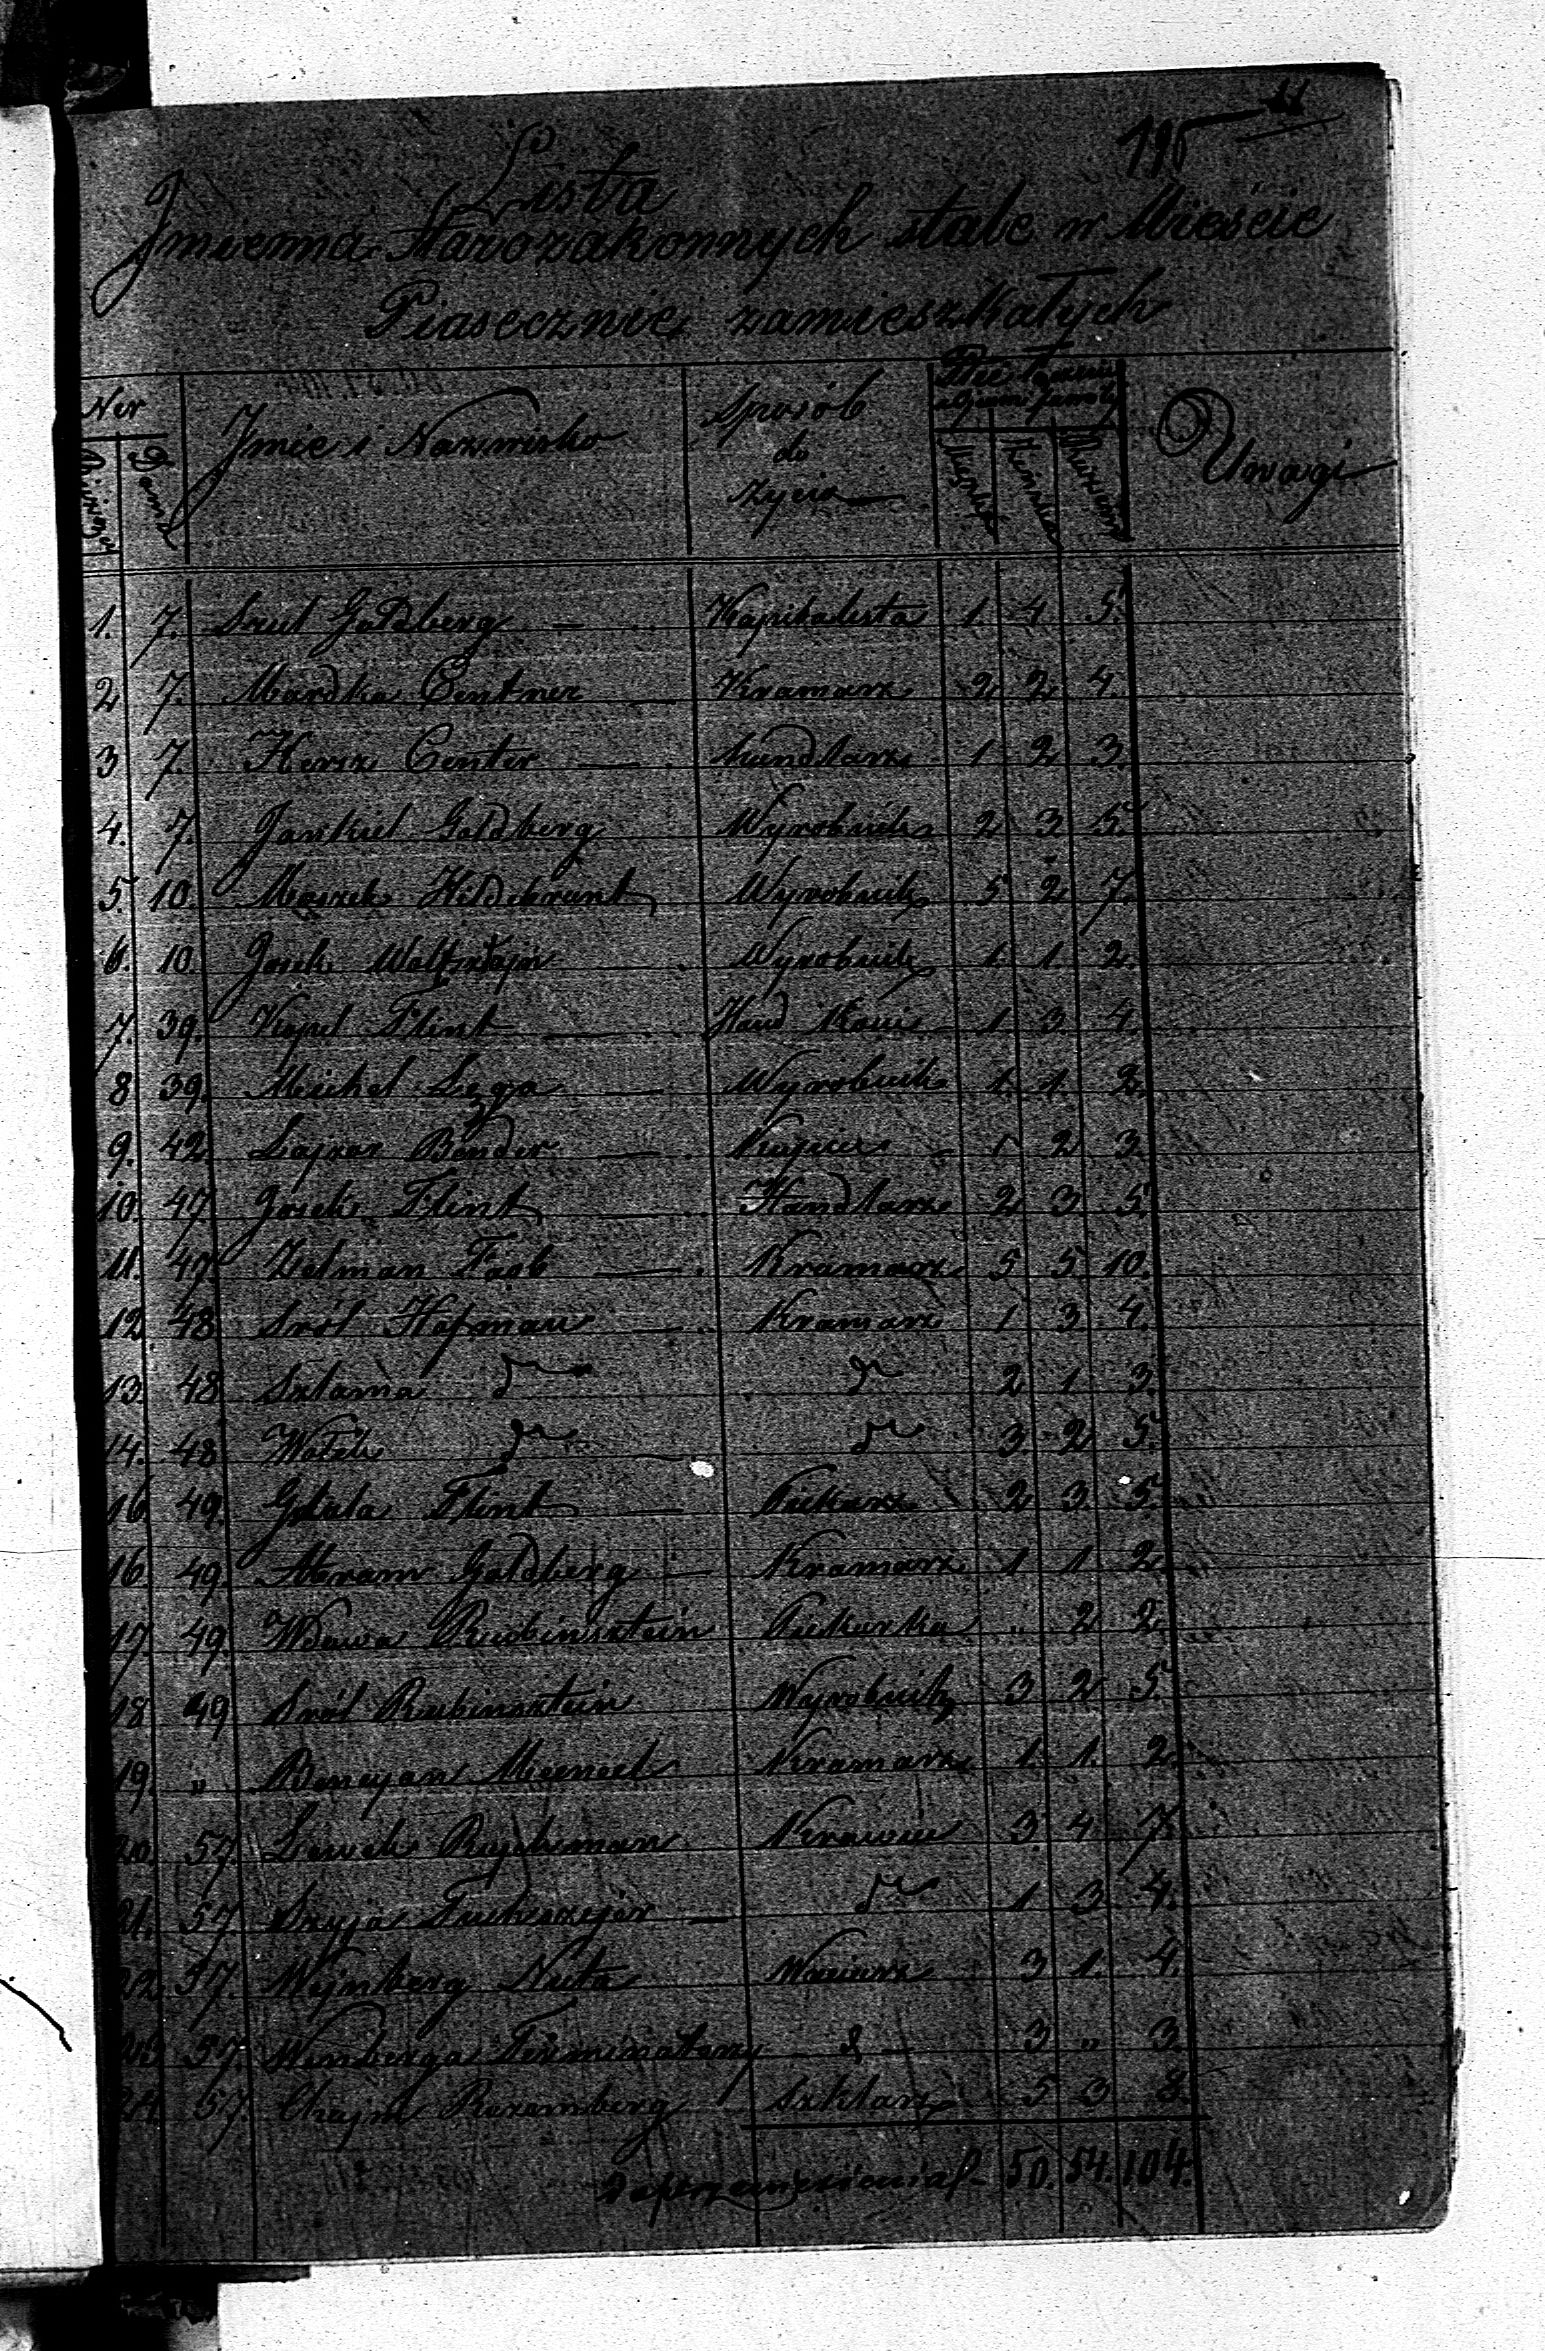 195
Lista
Jmienna Starozakonnych stale w Mieście
Piasecznie zamieszkałych
Ner Jmie i Nazwisko Sposób do życia Uwagi
1. 7. Srul Goldberg — Kapitalista 1. 4 5.
2 7. Mardka Centner — Kramarz 2 2 4.
3 7. Hersz Center — handlarz 1 2 3.
4. 7. Jankiel Goldberg Wyrobnik 2 3 5.
5. 10. Moszek Hildebrant Wyrobnik 5 2 7.
6. 10. Josek Wyrobnik 1. 1. 2.
7. 39. Kopel Flint — Hand 1 3 4.
8 39. Meichel — Wyrobnik 1. 1. 2.
9. 42. Lajzor Bender — 1 2 3.
10. 47. Josek Flint — Handlarz 2 3 5.
11. 47. Zelman Farb — Kramarz 5 5 10.
12 48 Sról Hofman — Kramarz 1 3 4.
13. 48 Szlama do do 2 1 3.
14. 48 Wolek do do 3 2 5.
16 49. Flint — Piekarz 2 3 5.
16 49. Abram Goldberg — Kramarz 1 1 2.
17 49 Wdowa Rubinsztein Piekarka " 2 2.
18 49 Sról Rubinsztein Wyrobnik 3 2 5.
19. " Kramarz 1. 1. 2.
20. 57. Lewek Rychman Krawiec 3 4 7.
21. 57 Szyja — do 1 3 4.
22. 57. Wejnberg Nuta 3 1. 4.
23 57. Winberga Terminatory — d — 3 " 3.
24 57. Chajm Rozemberg Szklarz 5 3 8.
50. 54. 104.